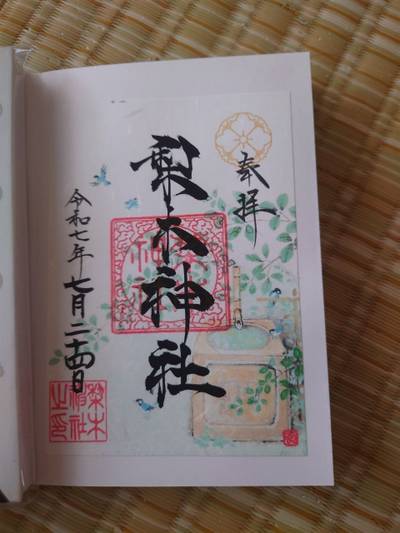 奉拝
梨木神社
令和七年七月二十四日
梨木
神社
之印